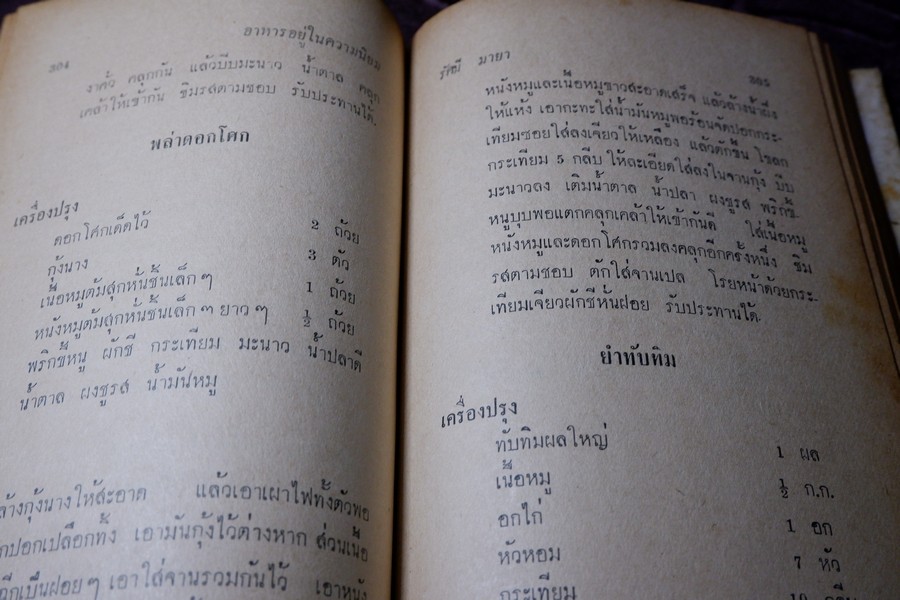 304
อาหารอยู่ในความนิยม
งาคั่ว คลุกกัน แล้วบีบมะนาว น้ำตาล คลุก
เคล้าให้เข้ากัน ชิมรสตามชอบ รับประทานได้.
พล่าดอกโศก
เครื่องปรุง
ดอกโศกเด็ดไว้ 2 ถ้วย
กุ้งนาง 3 ตัว
เนื้อหมูต้มสุกหั่นชิ้นเล็กๆ 1 ถ้วย
หนังหมูต้มสุกหั่นชิ้นเล็ก ๆ ยาว ๆ ½ ถ้วย
พริกขี้หนู ผักชี กระเทียม มะนาว น้ำปลาดี
น้ำตาล ผงชูรส น้ำมันหมู
ล้างกุ้งนางให้สะอาด แล้วเอาเผาไฟทั้งตัวพอ
ปอกเปลือกทิ้ง เอามันกุ้งไว้ต่างหาก ส่วนเนื้อ
ฉีกเป็นฝอยๆ เอาใส่จานรวมกันไว้ เอาหนัง
รัศมี มายา
305
หนังหมูและเนื้อหมูขาวสะอาดเสร็จ แล้วล้างน้ำผึ่ง
ให้แห้ง เอากะทะใส่น้ำมันหมูพอร้อนจัดปอกกระ-
เทียมซอยใส่ลงเจียวให้เหลือง แล้วตักขึ้น โขลก
กระเทียม 5 กลีบ ให้ละเอียดใส่ลงในจานกุ้ง บีบ
มะนาวลง เติมน้ำตาล น้ำปลา ผงชูรส พริกขี้-
หนูบุบพอแตกคลุกเคล้าให้เข้ากันดี ใส่เนื้อหมู
หนังหมูและดอกโศกรวมลงคลุกอีกครั้งหนึ่ง ชิม
รสตามชอบ ตักใส่จานเปล โรยหน้าด้วยกระ-
เทียมเจียวผักชีหั่นฝอย รับประทานได้.
ยำทับทิม
เครื่องปรุง
ทับทิมผลใหญ่ 1 ผล
เนื้อหมู ½ ก.ก.
อกไก่ 1 อก
หัวหอม 7 หัว
กระเทียม 10